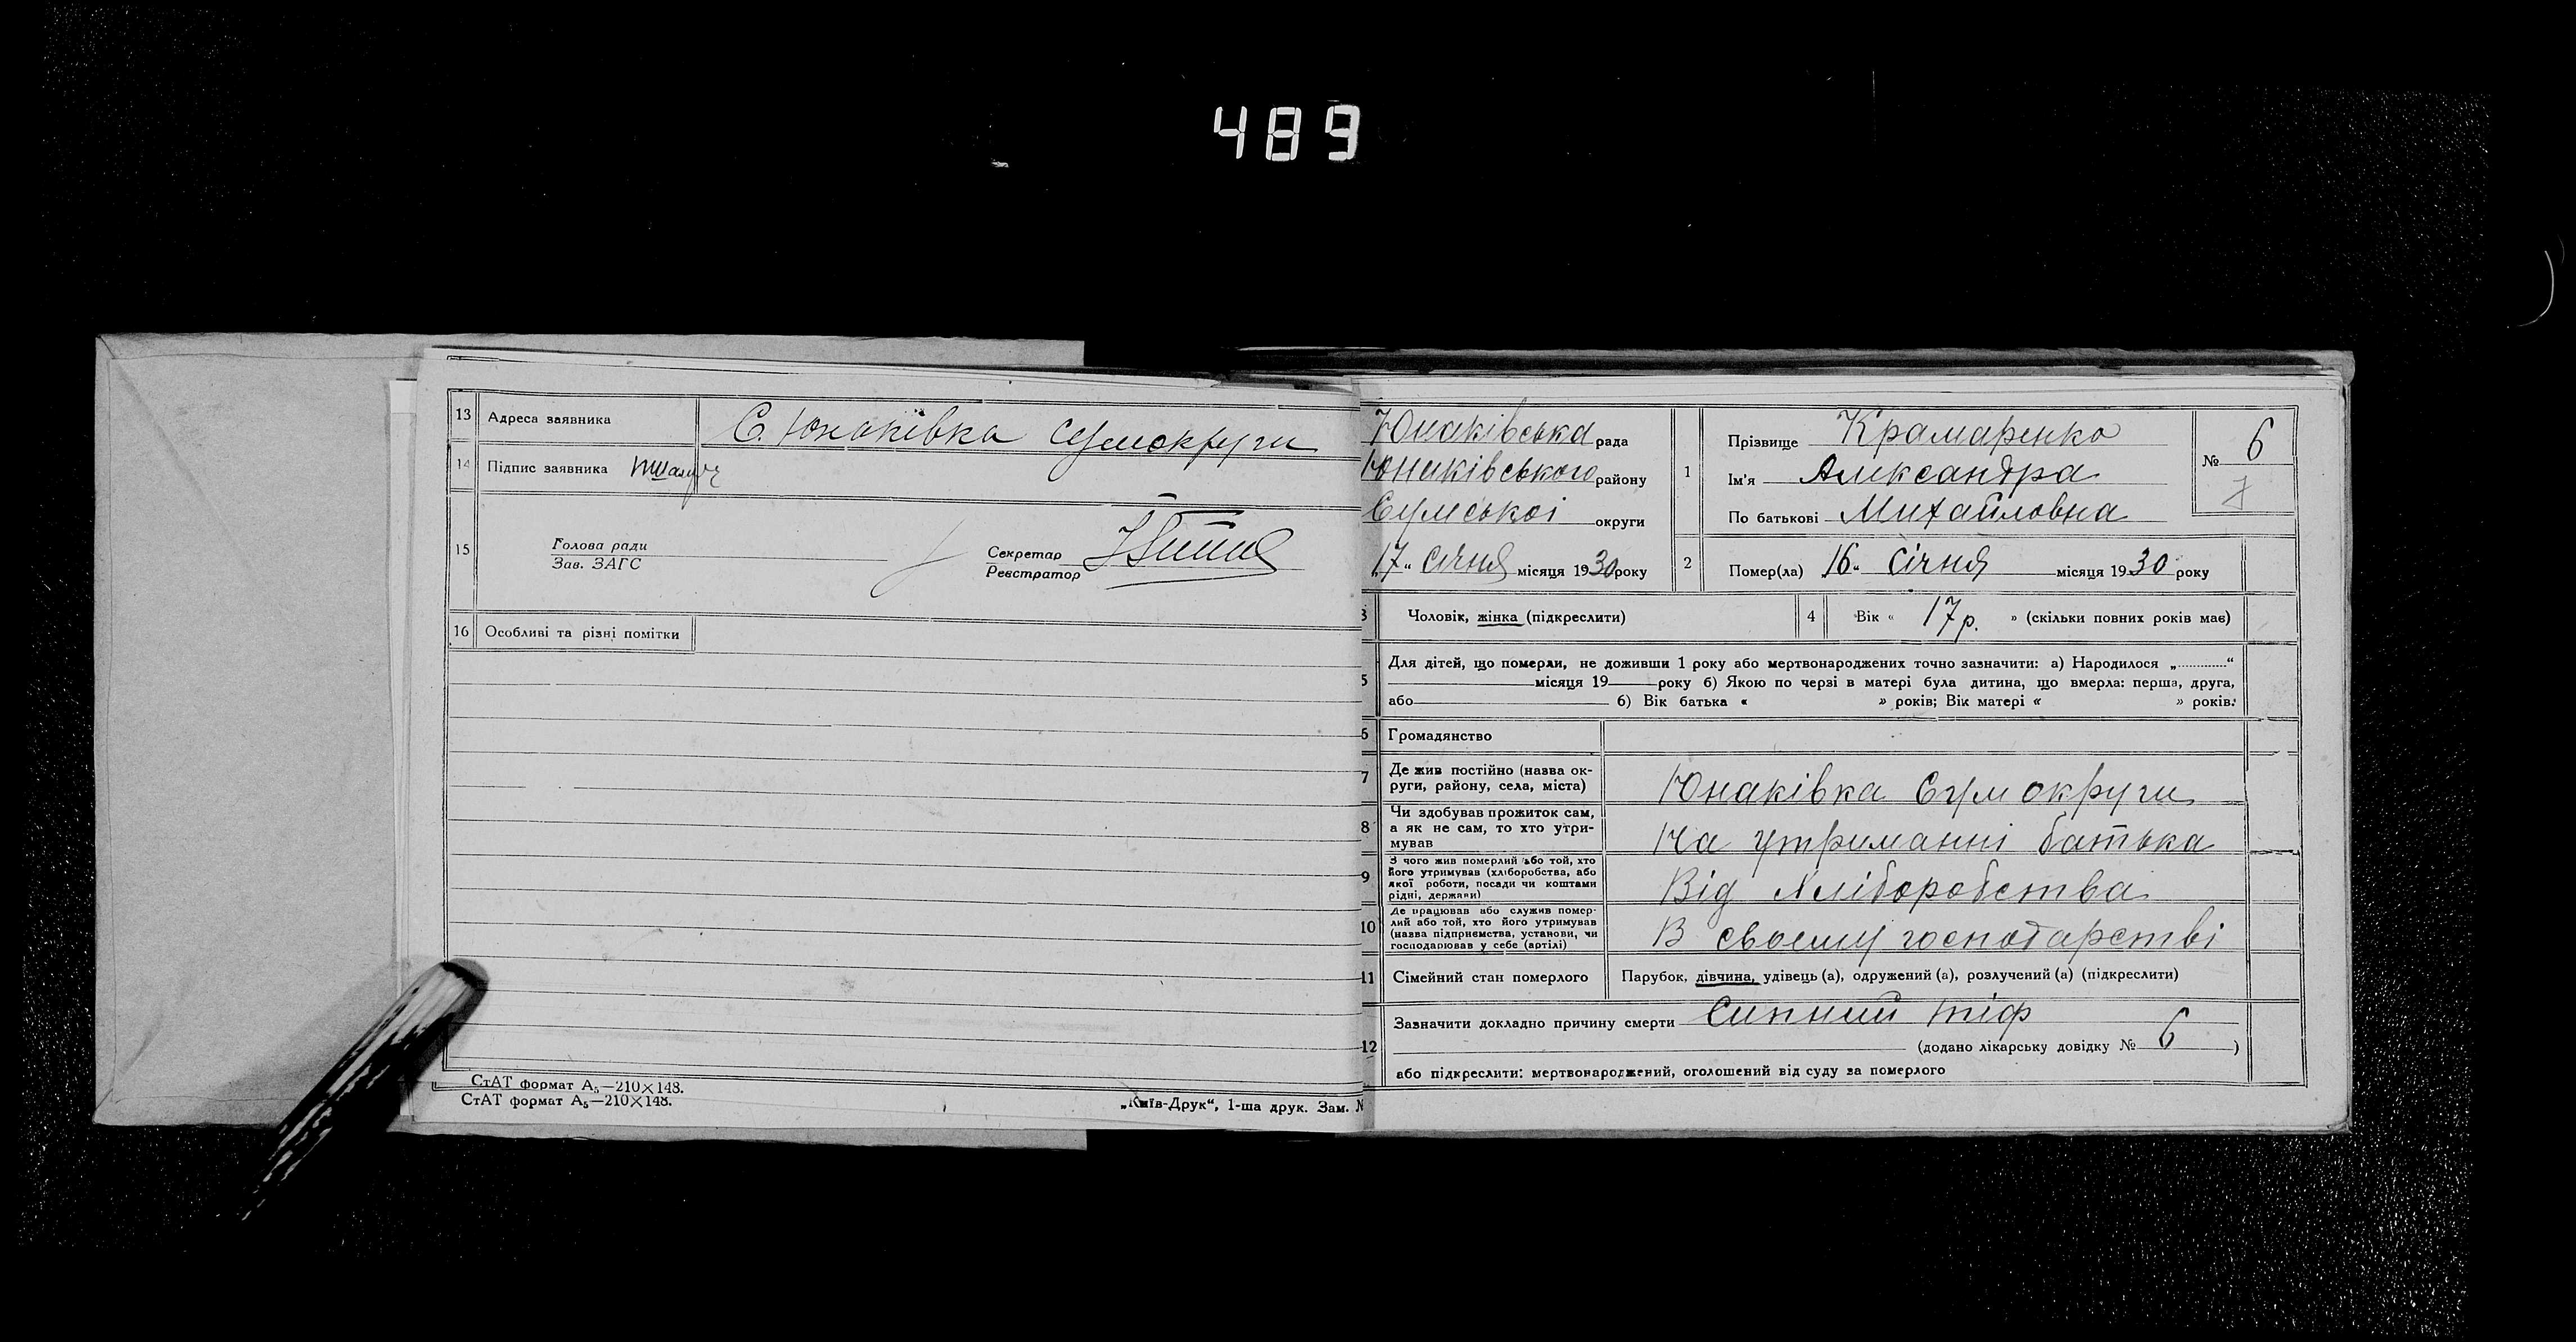 489
13 Адреса заявника С. Юнаківка Сумокруги
14 Підпис заявника
15 Голова ради
Зав. ЗАГС
Секретар
Реєстратор
16 Особливі та різні помітки
СтАТ формат А₅—210×148.
СтАТ формат А₅—210×148.
„Київ-Друк“, 1-ша друк. Зам. №
Юнаківська рада
Юнаківського району
Сумської округи
„17“ січня місяця 1930 року
1 Прізвище Крамаренко
Ім'я Александра
По батькові Михайловна
№ 6
7
2 Помер(ла) „16“ січня місяця 1930 року
3 Чоловік, жінка (підкреслити)
4 Вік « 17 р. » (скільки повних років має)
5 Для дітей, що померли, не доживши 1 року або мертвонароджених точно зазначити: а) Народилося „............“
місяця 19 року б) Якою по черзі в матері була дитина, що вмерла: перша, друга,
або б) Вік батька « » років; Вік матері « » років.
6 Громадянство
7 Де жив постійно (назва ок-
руги, району, села, міста) Юнаківка Сум округи
8 Чи здобував прожиток сам,
а як не сам, то хто утри-
мував На утриманні батька
9 З чого жив померлий або той, хто
його утримував (хліборобства, або
якої роботи, посади чи коштами
рідні, держави) Від Хліборобства
10 Де працював або служив помер-
лий або той, хто його утримував
(назва підприємства, установи, чи
господарював у себе (артілі) В своєму господарстві
11 Сімейний стан померлого Парубок, дівчина, удівець (а), одружений (а), розлучений (а) (підкреслити)
12 Зазначити докладно причину смерти Сипний тіф
(додано лікарську довідку № 6 )
або підкреслити: мертвонароджений, оголошений від суду за померлого